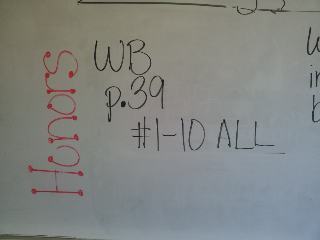 Honors
WB
p.39
#1-10 ALL